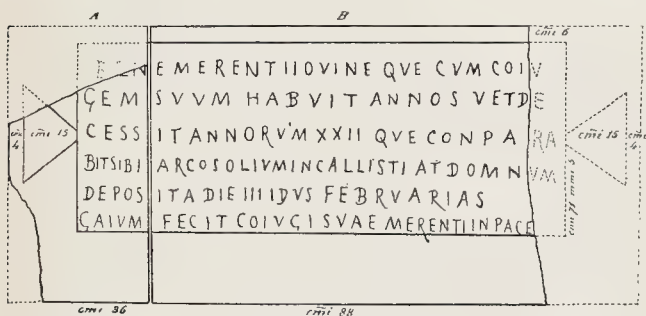 A B
cm̄i 6
BENEMERENTI IOVINE QVE CVM COIV
GEM SVVM HABVIT ANNOS V ET DE
CESSIT ANNORVM XXII QVE CONPARA
BIT SIBI ARCOSOLIVM IN CALLISTI AT DOMNVM
DEPOSITA DIE IIII IDVS FEBRVARIAS
GAIVM FECIT COIVGI SVAE MERENTI IN PACE
cm̄i 4 cm̄i 15 cm̄i 15 cm̄i 4
cmi 36 cm̄i 88